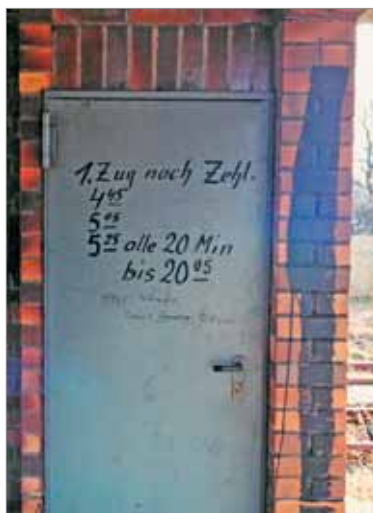 1. Zug nach Zehl.
4 45
5 05
5 25 alle 20 Min
bis 20 05